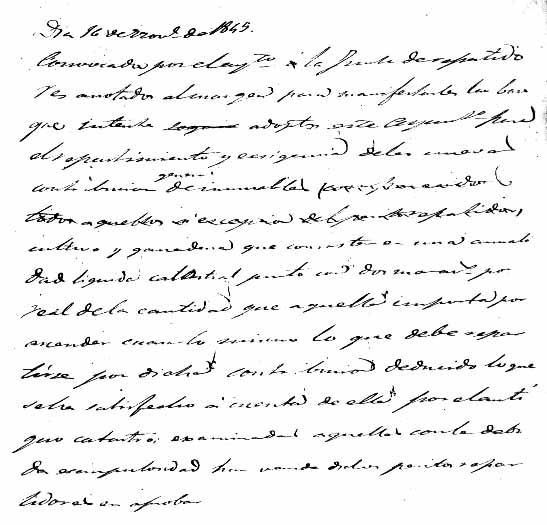 Dia 16 de Novre de 1845.
Convocada por el aytto a la Junta de repartido
res anotados al margen para manifestarles las bases
que intenta adoptar este Ayuntto para
el repartimiento y exigencia de la nueva
contribucion general de inmuebles
aquellos a escepcion del repartidos,
cultivo y ganaderia que consiste en una canti
dad liquida catastral junto con dos maras por
real de la cantidad que aquella importa por
ascender cuando menos lo que debe repar
tirse por dicha contribucion deducido lo que
se ha satisfecho a cuenta de ella por el anti
guo catastro; examinadas aquellas con la debi
da escrupulosidad han venido dichos peritos repar
tidores en aprobar